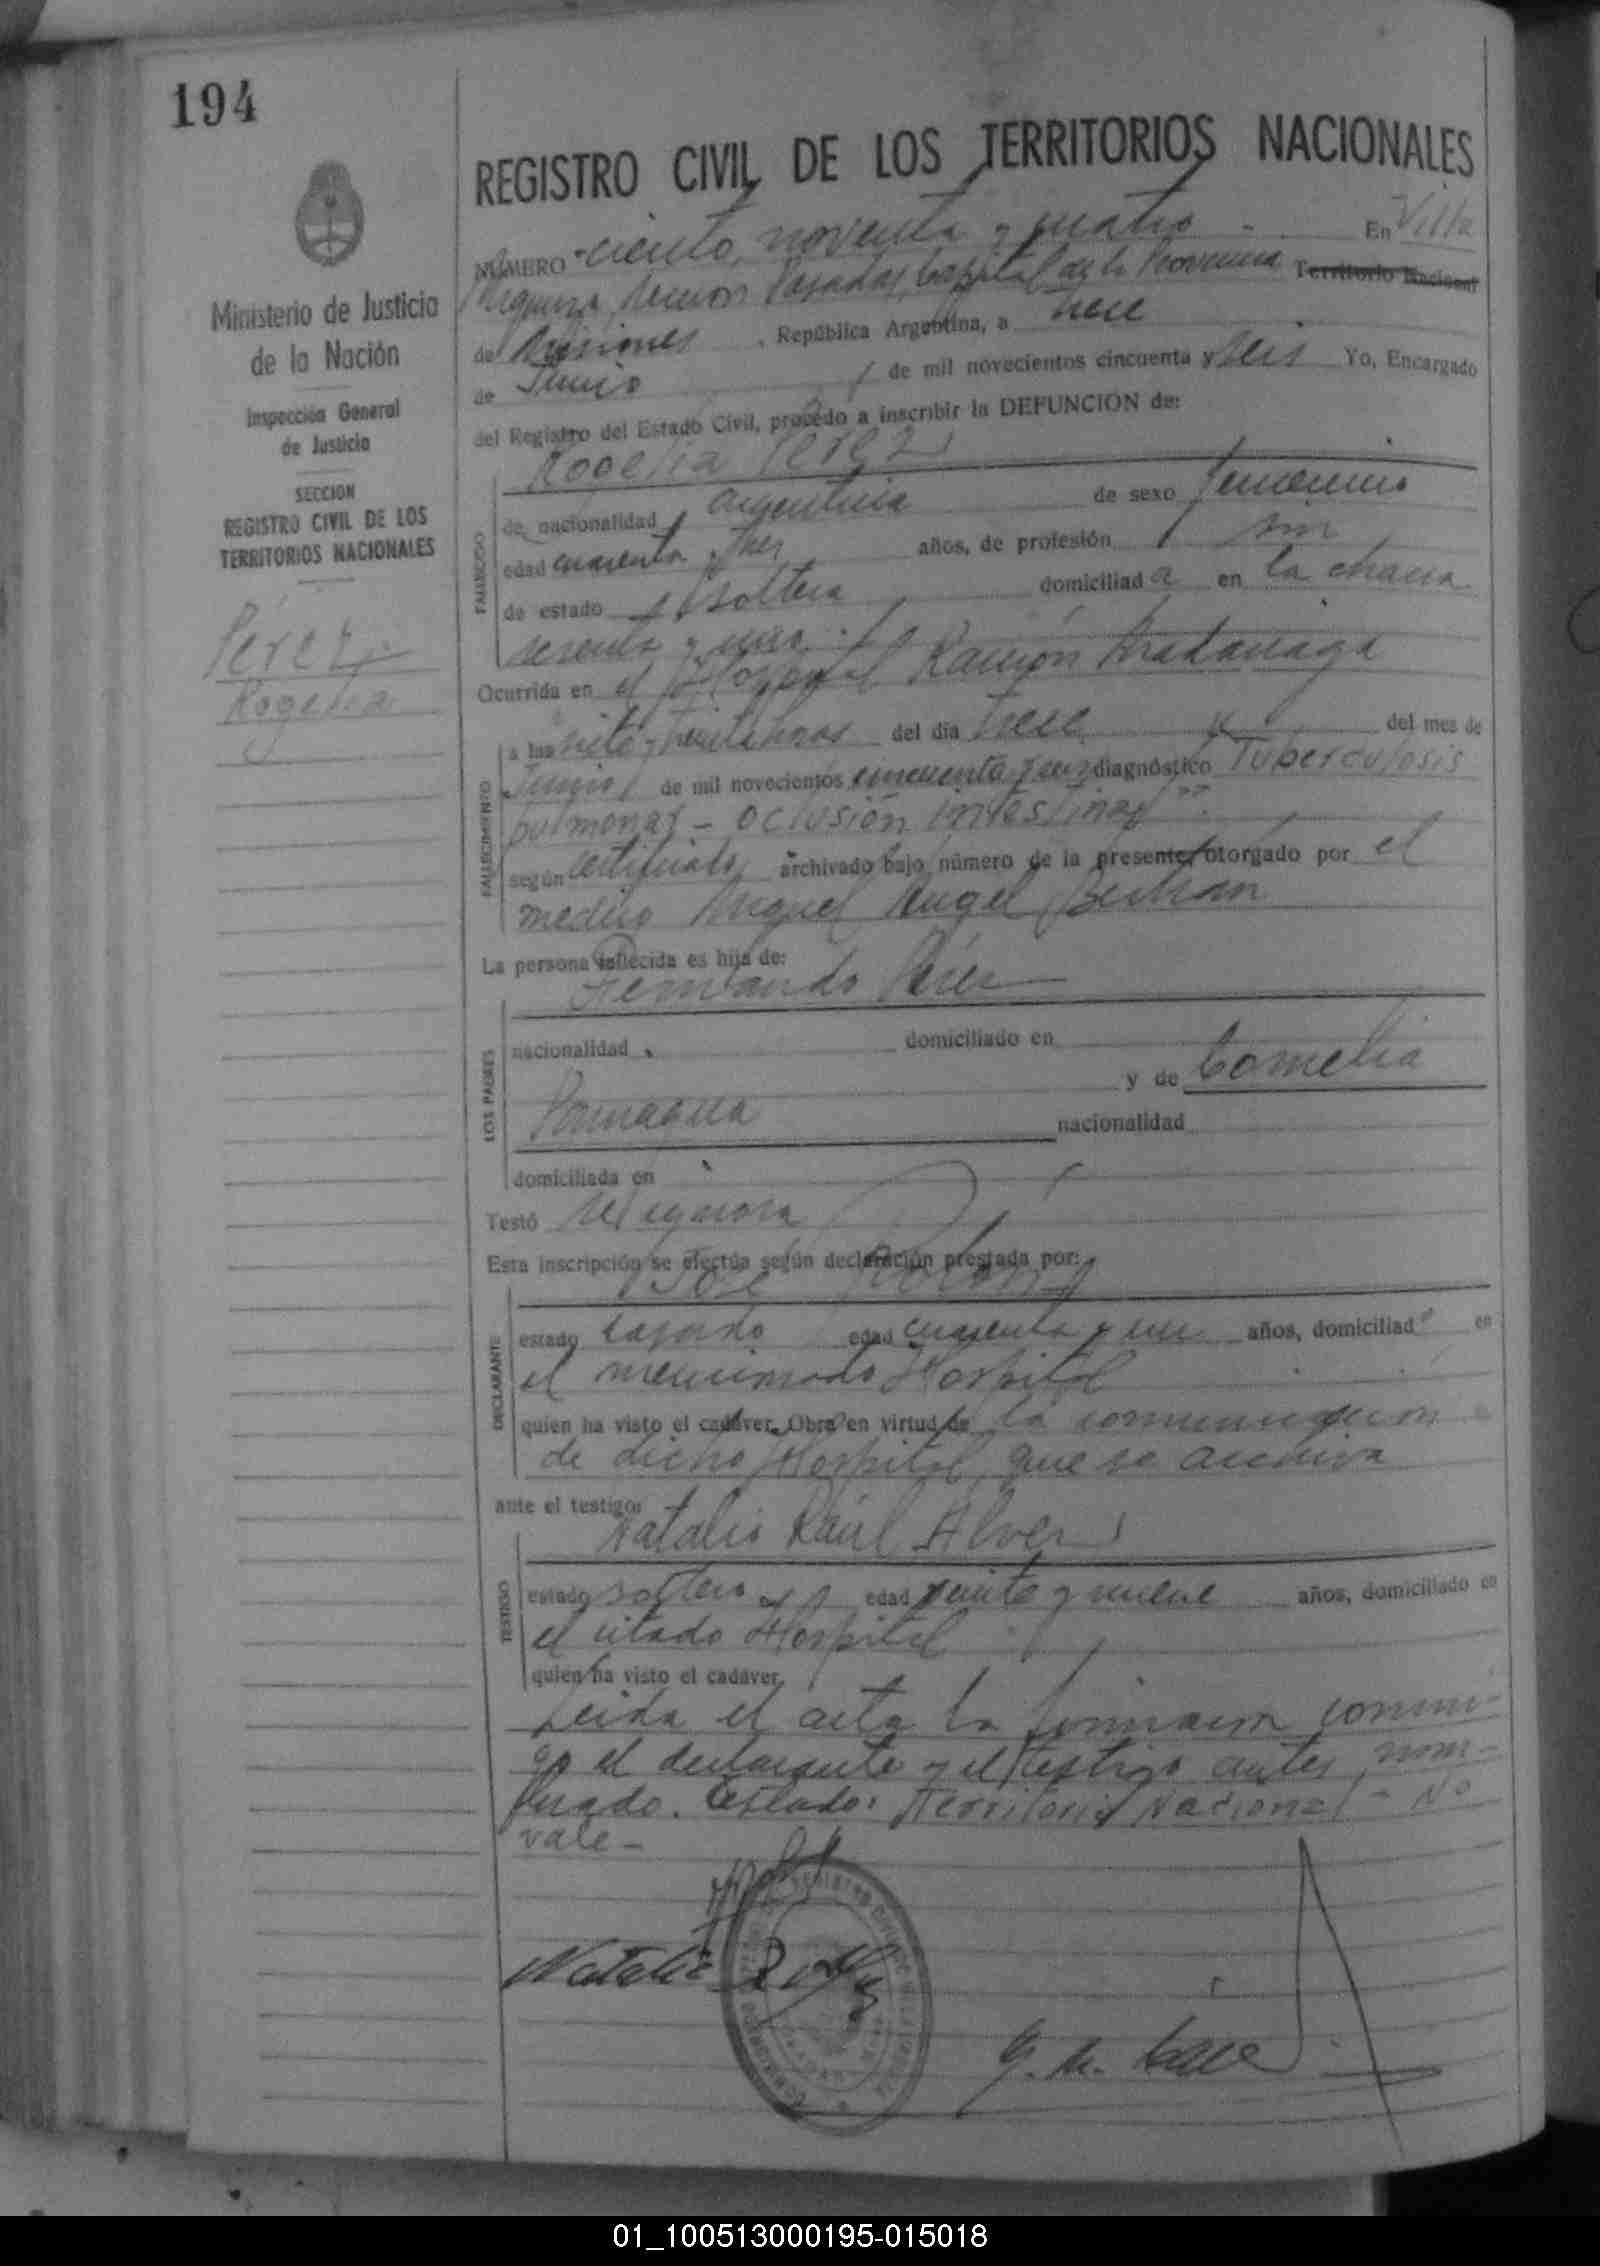 194
REGISTRO CIVIL DE LOS TERRITORIOS NACIONALES
Ministerio de Justicia
de la Nación
Inspección General
de Justicia
SECCION
REGISTRO CIVIL DE LOS
TERRITORIOS NACIONALES
Pérez
Rogelia
NÚMERO ciento noventa y cuatro En Villa
Posadas, Capital de la Provincia Territorio Nacional
de Misiones, República Argentina, a trece
de Junio de mil novecientos cincuenta y seis Yo, Encargado
del Registro del Estado Civil, procedo a inscribir la DEFUNCION de:
Rogelia Perez
FALLECIDO
de nacionalidad argentina de sexo femenino
edad cuarenta y tres años, de profesión sin
de estado soltera domiciliada en la chacra
sesenta y uno
Ocurrida en el Hospital Ramón Madariaga
FALLECIMIENTO
a las siete y treinta horas del dia trece del mes de
Junio de mil novecientos cincuenta y seis diagnóstico Tuberculosis
pulmonar - oclusión intestinal".
según certificado archivado bajo número de la presente, otorgado por el
medico Miguel Angel
La persona fallecida es hija de:
Fernando Pérez
LOS PADRES
nacionalidad domiciliado en
y de Cornelia
nacionalidad
domiciliada en
Testó se ignora
Esta inscripción se efectúa según declaración prestada por:
José
DECLARANTE
estado casado edad cuarenta y un años, domiciliado en
el mencionado Hospital
quien ha visto el cadáver. Obra en virtud de la comunicación
de dicho Hospital, que se archiva
ante el testigo:
Natalio Raúl Alvez
TESTIGO
estado soltero edad veinte y nueve años, domiciliado en
el citado Hospital
quien ha visto el cadáver.
Leída el acta la firmaron conmi-
go el declarante y el testigo antes nom-
brado. Testado: Territorio Nacional - No
vale -
Natalio R
01_100513000195-015018